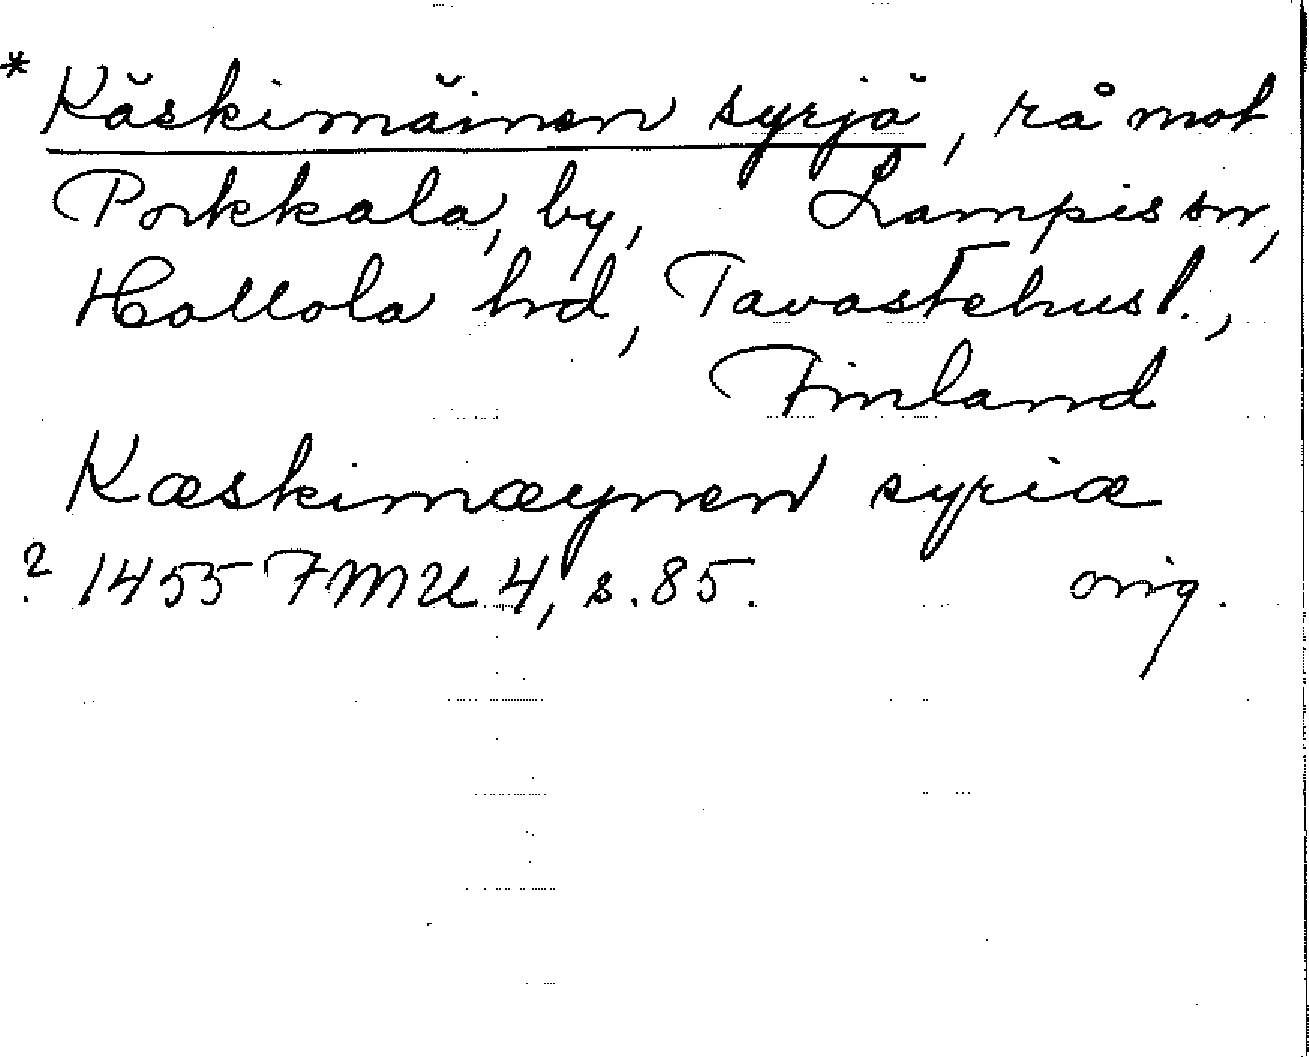 * Käskimäinen syrjä, rå mot
Porkkala, by, Lampis sn,
Hollola hd, Tavastehusl.,
Finland
Kæskimæynen syriæ
? 1455 FMU 4, s. 85. orig.